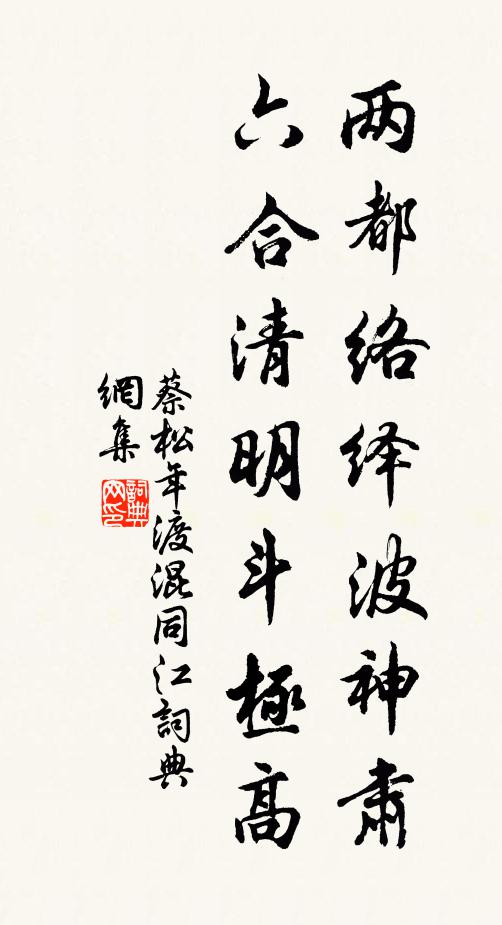 两都络绎波神肃
六合清明斗極高
蔡松年渡混同江詞典
網集
詞典
网印